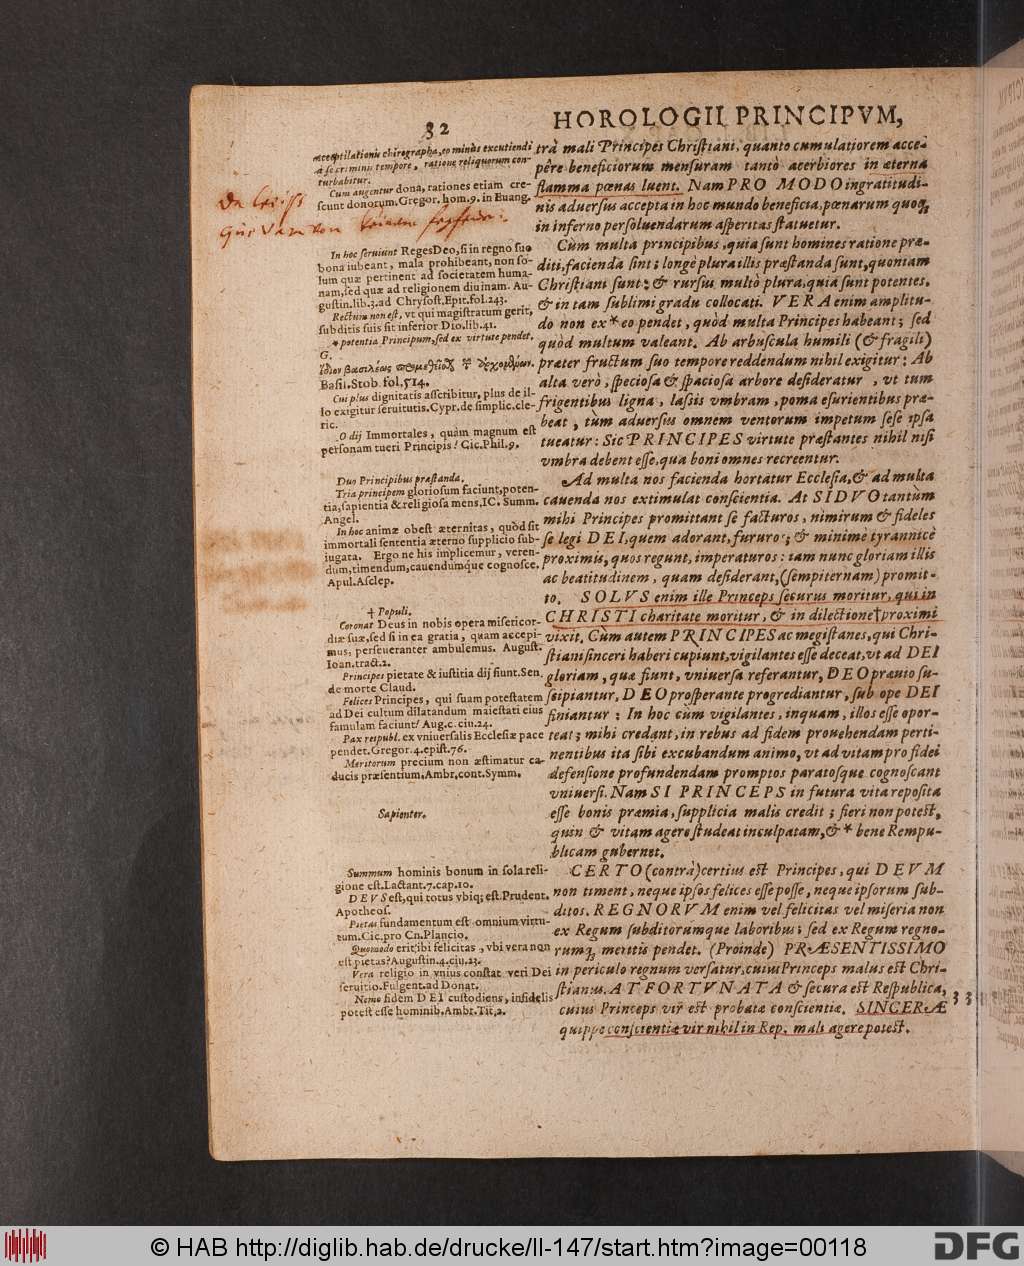 32
HOROLOGII PRINCIPVM,
acceptilationis chirographa, eo minùs excutiendi
à se criminis tempore, ratione reliquorum con-
turbabitur.
Cum augentur dona, rationes etiam cre-
scunt donorum. Gregor. hom. 9. in Euang.
In hoc seruiunt Reges Deo, si in regno suo
bona iubeant, mala prohibeant, non so-
lum quæ pertinent ad societatem huma-
nam, sed quæ ad religionem diuinam. Au-
gustin. lib. 3. ad Chrysost. Epit. fol. 243.
Rectum non est, vt qui magistratum gerit,
subditis suis sit inferior Dio. lib. 41.
* potentia Principum, sed ex virtute pendet.
G.
Basil. Stob. fol. 514.
Cui plus dignitatis asscribitur, plus de il-
lo exigitur seruitutis. Cypr. de simplic. cle-
ric.
O dij Immortales, quàm magnum est
personam tueri Principis! Cic. Phil. 9.
Duo Principibus præstanda.
Tria principem gloriosum faciunt, poten-
tia, sapientia & religiosa mens. IC. Summ.
Angel.
In hoc animæ obest æternitas, quòd sit
immortali sententia æterno supplicio sub-
iugata. Ergo ne his implicemur, veren-
dum, timendum, cauendumque cognosce.
Apul. Asclep.
† Populi.
Coronat Deus in nobis opera misericor-
diæ suæ, sed si in ea gratia, quam accepi-
mus, perseueranter ambulemus. August.
Ioan. tract. 2.
Principes pietate & iustitia dij fiunt. Sen.
de morte Claud.
Felices Principes, qui suam potestatem
ad Dei cultum dilatandum maiestati eius
famulam faciunt! Aug. c. ciu. 24.
Pax reipubl. ex vniuersalis Ecclesiæ pace
pendet. Gregor. 4. epist. 76.
Meritorum precium non æstimatur ca-
ducis præsentium. Ambr. cont. Symm.
Sapienter.
Summum hominis bonum in sola reli-
gione est. Lactant. 7. cap. 10.
DEVS est, qui totus vbiq; est. Prudent.
Apotheos.
Pietas fundamentum est omnium virtu-
tum. Cic. pro Cn. Plancio.
Quomodo erit ibi felicitas, vbi vera non
est pietas? Augustin. 4. ciu. 23.
Vera religio in vnius constat veri Dei
seruitio. Fulgent. ad Donat.
Nemo fidem DEI custodiens, infidelis
potest esse hominib. Ambr. Tit. 2.
trà mali Principes Christiani, quanto cumulatiorem acce-
pêre beneficiorum mensuram tantò acerbiores in æterna
flamma pœnas luent. Nam PRO MODO ingratitudi-
nis aduersus accepta in hoc mundo beneficia, pœnarum quoq;
in inferno persoluendarum asperitas statuetur.
Cùm multa principibus, quia sunt homines ratione præ-
diti, facienda sint; longè plura illis præstanda sunt, quoniam
Christiani sunt: & rursus multò plura, quia sunt potentes.
& in tam sublimi gradu collocati. VERA enim amplitu-
do non ex * eo pendet, quòd multa Principes habeant; sed
quòd multum valeant. Ab arbuscula humili (& fragili)
præter fructum suo tempore reddendum nihil exigitur: Ab
alta verò, speciosa & spaciosa arbore desideratur, vt tum
frigentibus ligna, lassis vmbram, poma esurientibus præ-
beat, tùm aduersus omnem ventorum impetum sese ipsa
tueatur: Sic PRINCIPES virtute præstantes nihil nisi
vmbra debent esse, qua boni omnes recreentur.
Ad multa nos facienda hortatur Ecclesia, & ad multa
cauenda nos extimulat conscientia. At SI DVO tantùm
mihi Principes promittant se facturos, nimirum & fideles
se legi DEI, quem adorant, fururos; & minimè tyrannicè
proximis, quos regunt, imperaturos: iam nunc gloriam illis
ac beatitudinem, quam desiderant, (sempiternam) promit-
to. SOLVS enim ille Princeps securus moritur, qui in
CHRISTI charitate moritur, & in dilectione† proximi
vixit. Cùm autem PRINCIPES ac megistanes, qui Chri-
stiani sinceri haberi cupiunt, vigilantes esse deceat, vt ad DEI
gloriam, quæ fiunt, vniuersa referantur, DEO præuio su-
scipiantur, DEO prosperante progrediantur, sub ope DEI
finiantur: In hoc cùm vigilantes, inquam, illos esse opor-
teat; mihi credant, in rebus ad fidem prouehendam perti-
nentibus ita sibi excubandum animo, vt ad vitam pro fidei
defensione profundendam promptos paratosque cognoscant
vniuersi. Nam SI PRINCEPS in futura vita reposita
esse bonis præmia, supplicia malis credit; fieri non potest,
quin & vitam agere studeat inculpatam, & * bene Rempu-
blicam gubernet.
CERTO (contrà) certius est Principes, qui DEVM
non timent, neque ipsos felices esse posse, neque ipsorum sub-
ditos. REGNORVM enim vel felicitas vel miseria non
ex Regum subditorumque laboribus; sed ex Regum regno-
rumq; meritis pendet. (Proinde) PRÆSENTISSIMO
in periculo regnum versatur, cuius Princeps malus est Chri-
stianus. AT FORTVNATA & secura est Respublica,
cuius Princeps vir est probatæ conscientiæ. SINCERÆ
quippe conscientiæ vir nihil in Rep. mali agere potest.
33
© HAB http://diglib.hab.de/drucke/li-147/start.htm?image=00118
DFG